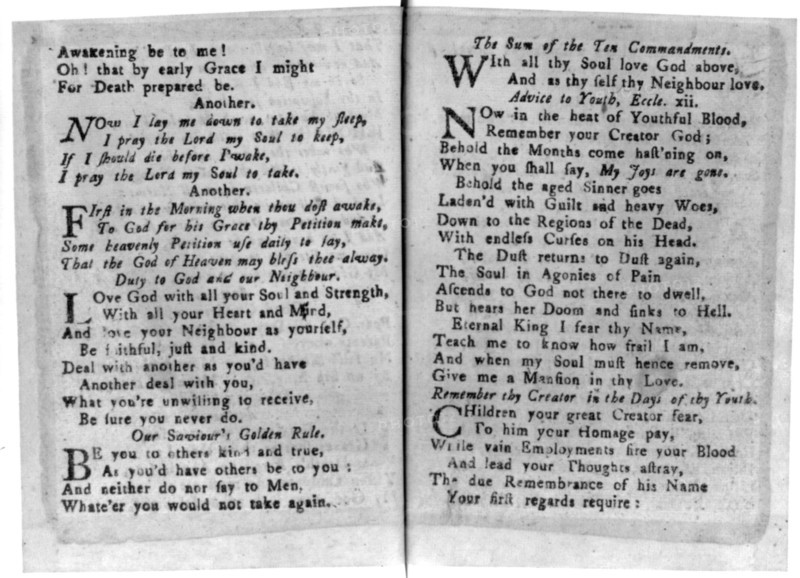 Awakening be to me!
Oh! that by early Grace I might
For Death prepared be.
Another.
NOw I lay me down to take my ſleep,
I pray the Lord my Soul to keep,
If I ſhould die before I wake,
I pray the Lord my Soul to take.
Another.
FIrſt in the Morning when thou doſt awake,
To God for his Grace thy Petition make,
Some heavenly Petition uſe daily to ſay,
That the God of Heaven may bleſs thee alway.
Duty to God and our Neighbour.
LOve God with all your Soul and Strength,
With all your Heart and Mind,
And love your Neighbour as yourſelf,
Be faithful, juſt and kind.
Deal with another as you'd have
Another deal with you,
What you're unwilling to receive,
Be ſure you never do.
Our Saviour's Golden Rule.
BE you to others kind and true,
As you'd have others be to you:
And neither do nor ſay to Men,
Whate'er you would not take again.
The Sum of the Ten Commandments.
WIth all thy Soul love God above,
And as thy ſelf thy Neighbour love.
Advice to Youth, Eccle. xii.
NOw in the heat of Youthful Blood,
Remember your Creator God;
Behold the Months come haſt'ning on,
When you ſhall ſay, My Joys are gone.
Behold the aged Sinner goes
Laden'd with Guilt and heavy Woes,
Down to the Regions of the Dead,
With endleſs Curſes on his Head.
The Duſt returns to Duſt again,
The Soul in Agonies of Pain
Aſcends to God not there to dwell,
But hears her Doom and ſinks to Hell.
Eternal King I fear thy Name,
Teach me to know how frail I am,
And when my Soul muſt hence remove,
Give me a Manſion in thy Love.
Remember thy Creator in the Days of thy Youth.
CHildren your great Creator fear,
To him your Homage pay,
While vain Employments fire your Blood
And lead your Thoughts aſtray,
The due Remembrance of his Name
Your firſt regards require: